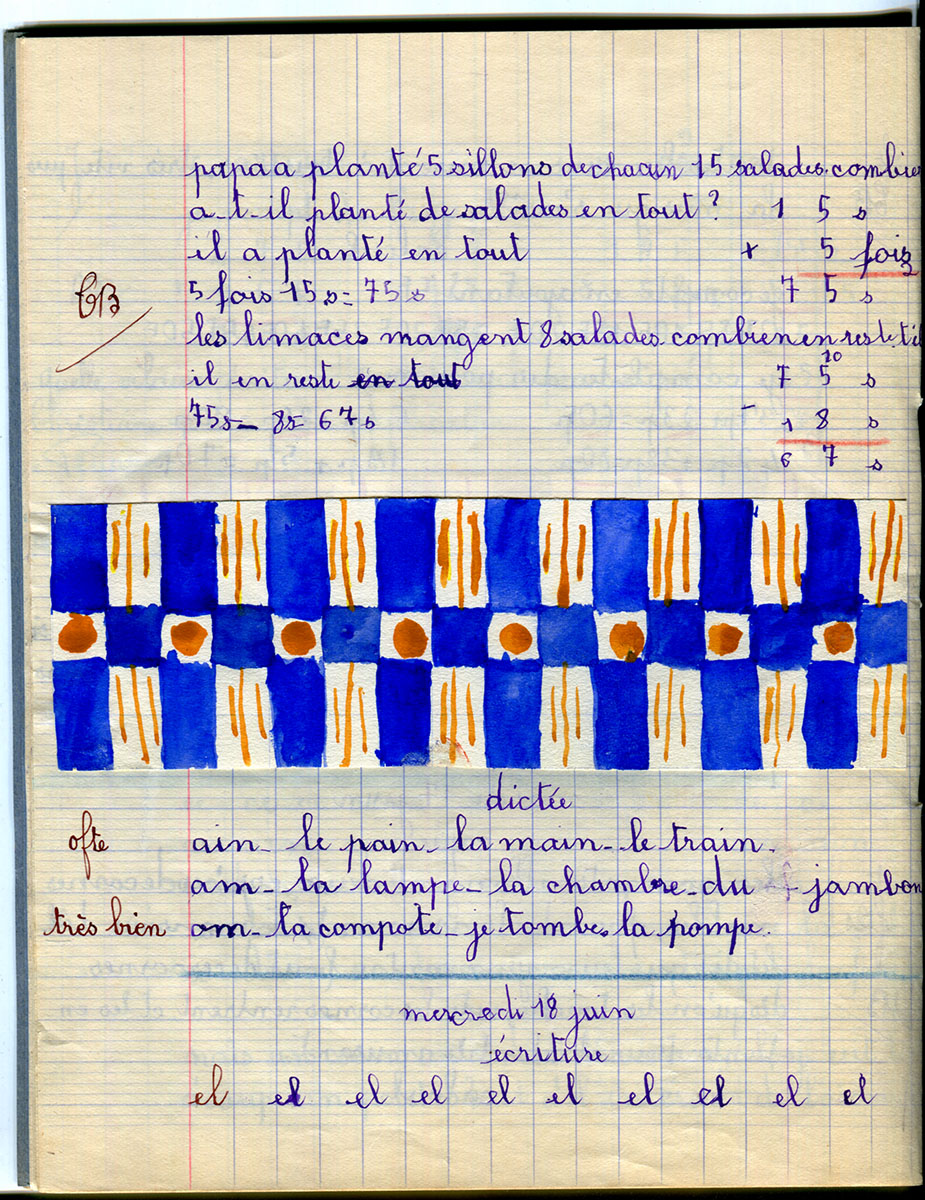 papa a planté 5 sillons de chacun 15 salades. combie
a-t-il planté de salades en tout ? 1 5 s
il a planté en tout × 5 fois
TB 5 fois 15 s = 75 s 7 5 s
les limaces mangent 8 salades. combien en reste-t-il
il en reste en tout 7 ¹⁰5 s
75s - 8s = 67 s - 1 8 s
6 7 s
dictée
ofte ain - le pain - la main - le train.
am - la lampe - la chambre - du jambon
très bien om - la compote - je tombe, la pompe.
mercredi 18 juin
écriture
el el el el el el el el el el